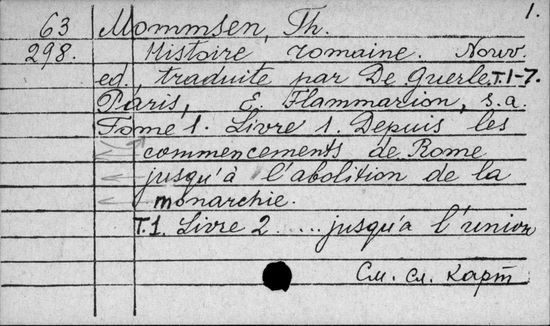 1.
63 Mommsen, Th.
298. Histoire romaine. Nouv
ed, traduite par De Guerle T.1-7.
Paris, E. Flammarion, s.a.
Tome 1. Livre 1. Depuis les
commencements de Rome
jusqu'à l'abolition de la
monarchie.
T.1. Livre 2 .... jusqu'a l'union
См. сл. карт